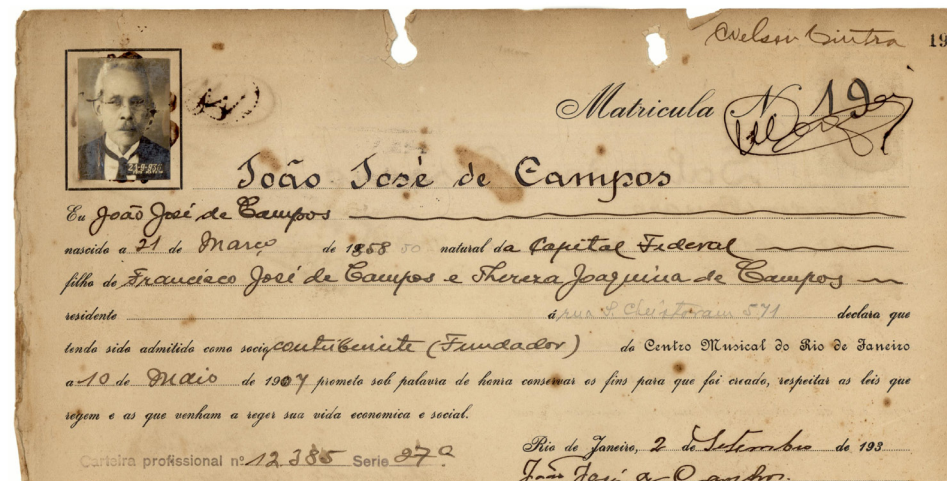 Nelson Cintra 19
Matricula N. 19
João José de Campos
Eu João José de Campos
nascido a 21 de Março de 1858 50 natural da Capital Federal
filho de Francisco José de Campos e Thereza Joaquina de Campos
residente á rua S. Christovam 571 declara que
tendo sido admitido como socio contribuinte (Fundador) do Centro Musical do Rio de Janeiro
a 10 de Maio de 1907 prometo sob palavra de honra conservar os fins para que foi creado, respeitar as leis que
regem e as que venham a reger sua vida economica e social.
Rio de Janeiro, 2 de Setembro de 193
Carteira profissional nº 12.385 Serie 27ª
João José de Campos.